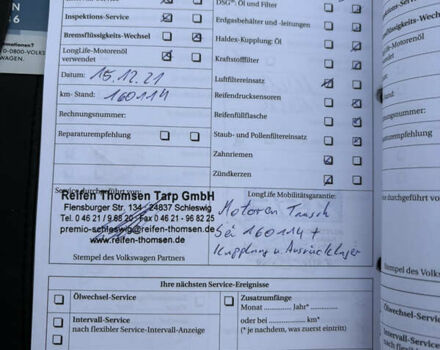 DSG®: Öl und Filter
Inspektions-Service
Erdgasbehälter und -leitungen
Bremsflüssigkeits-Wechsel
Haldex-Kupplung: Öl
LongLife-Motorenöl
verwendet
Kraftstofffilter
Datum: 15.12.21
Luftfiltereinsatz
km-Stand: 160114
Reifendrucksensoren
Rechnungsnummer:
Reifenfüllflasche
Reparaturempfehlung
Staub- und Pollenfiltereinsatz
Zahnriemen
Zündkerzen
Service durchgeführt von:
LongLife Mobilitätsgarantie:
Reifen Thomsen Tarp GmbH
Flensburger Str. 134 24837 Schleswig
Tel. 0 46 21 / 9 88 20 Fax 0 46 21 - 96 82 25
premio-schleswig@reifen-thomsen.de
www.reifen-thomsen.de
Motoren Tausch
bei 160114 +
Kupplung u. Ausrücklager
Stempel des Volkswagen Partners
Ihre nächsten Service-Ereignisse
Ölwechsel-Service
Zusatzumfänge
Monat Jahr*
Intervall-Service
nach flexibler Service-Intervall-Anzeige
oder bei km*
(* je nachdem, was zuerst eintritt)
LongLife-Motorenöl
verwendet
Datum:
km-Stand:
Rechnungsnummer:
Reparaturempfehlung
Stempel des Volks